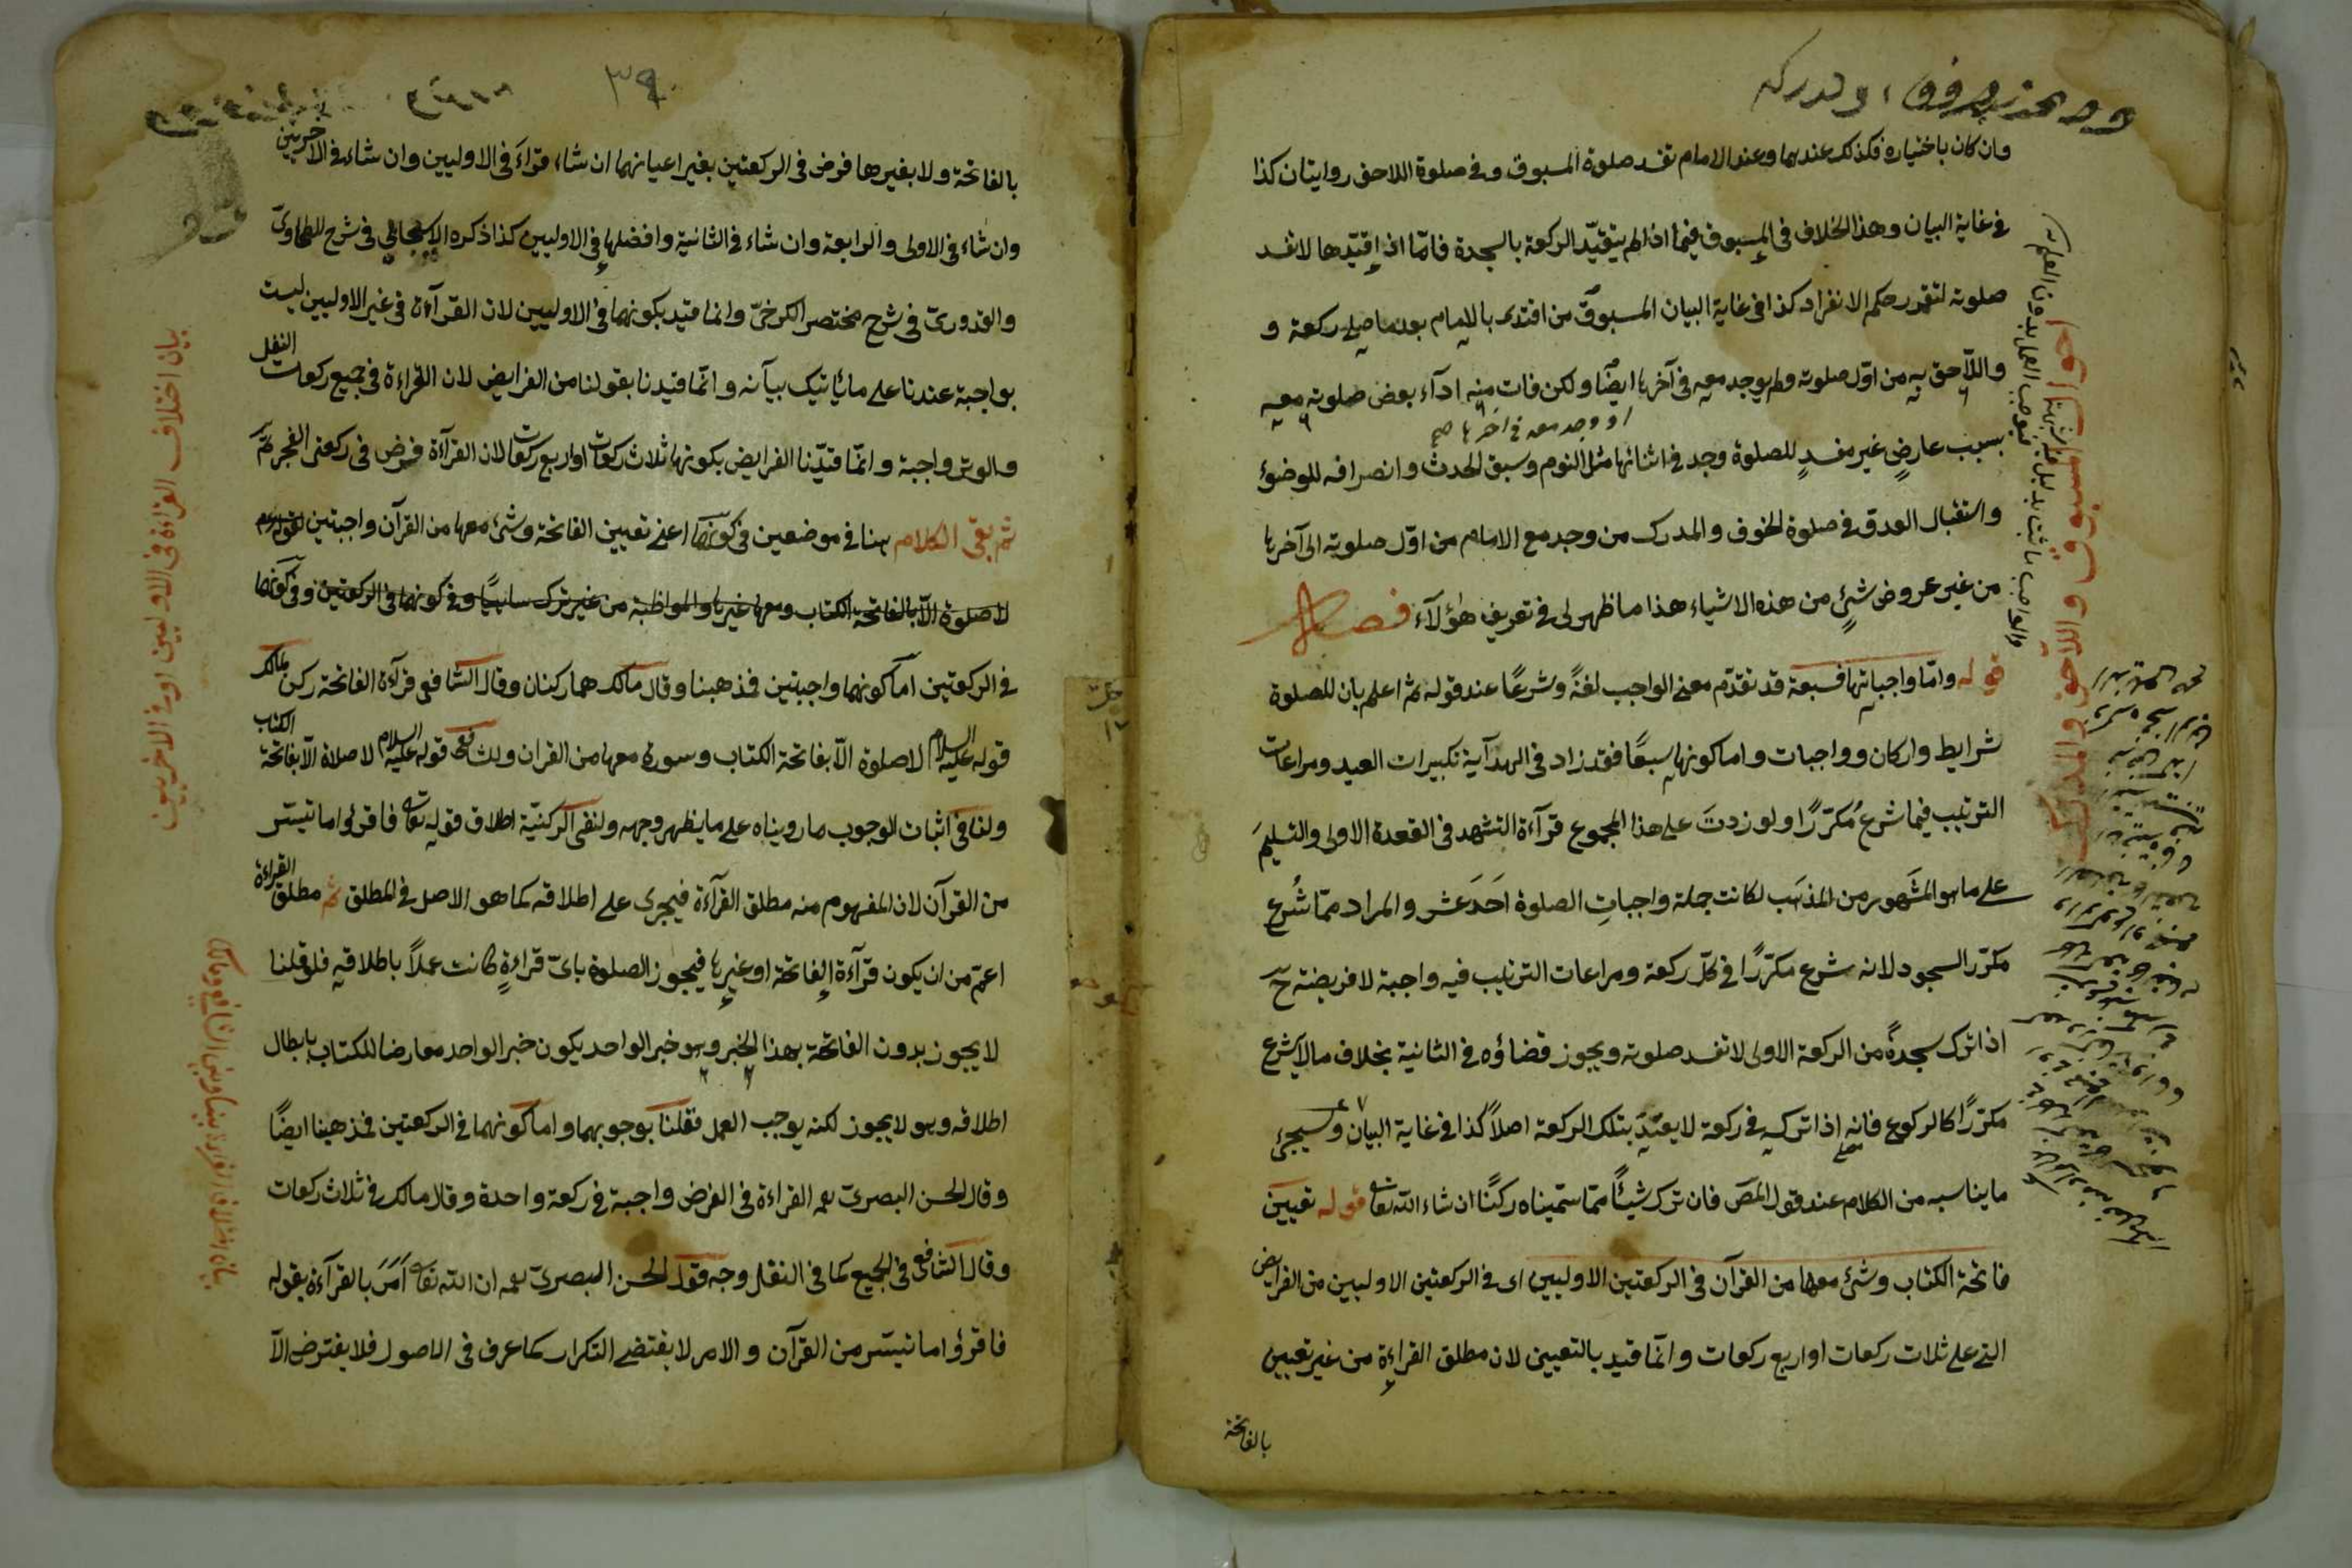 وان كان باختياره فكذلك عندهما وعند الامام تفسد صلوة المسبوق وفي صلوة اللاحق روايتان كذا
في غاية البيان وهذا الخلاف في المسبوق فيما اذا لم يتقيّد الركعة بالسجدة فامّا اذا قيّدها لا تفسد
صلوته لتقرر حكم الانفراد كذا في غاية البيان المسبوق من اقتدى بالامام بعد ما صلى ركعة و
واللّاحق به من اوّل صلوته ولم يوجد معه في آخرها ايضًا ولكن فات منه ادآء بعض صلوته معه
او وجد معه في آخرها صح
بسبب عارضٍ غير مفسدٍ للصلوة وجد في اثنائها مثل النوم وسبق الحدث وانصرافه للوضوء
واستقبال العدو في صلوة الخوف والمدرك من وجد مع الامام من اوّل صلوته الى آخرها
من غير عروض شئٍ من هذه الاشياء هذا ما ظهر لى في تعريف هؤلآء فصل
قوله وامّا واجباتها فسبعة قد تقدّم معنى الواجب لغةً وشرعًا عند قوله ثم اعلم بان للصلوة
شرايط واركان وواجبات واما كونها سبعًا فقد زاد في الهدآية تكبيرات العيد ومراعات
الترتيب فيما شرع مُكرّرًا ولو زدتَ على هذا المجموع قرآءة التشهد في القعدة الاولى والتسليمَ
على ما هو المشهور من المذهب لكانت جملة واجباتِ الصلوة اَحَدَ عَشر والمراد ممّا شُرع
مكرّر السجود لانه شرع مكرّرًا في كلّ ركعة ومراعات الترتيب فيه واجبة لا فريضة حتى
اذا ترك سجدةً من الركعة الاولى لا تفسد صلوته ويجوز قضاؤه في الثانية بخلاف ما لا يشرع
مكرّرًا كالركوع فانه اذا تركه في ركعة لا يعتدّ بتلك الركعة اصلاً كذا في غاية البيان وسيجئ
ما يناسبه من الكلام عند قول المص فان ترك شيئًا ممّا سمّيناه ركنًا ان شاء الله تعا قوله تعيين
فاتحة الكتاب وشئ معها من القرآن في الركعتين الاوليين اى في الركعتين الاوليين من الفرايض
التى على ثلاث ركعات او اربع ركعات وانّما قيد بالتعيين لان مطلق القراءة من غير تعيين
بالفاتحة
المسبوق واللاحق والمدرك
٣٩
بالفاتحة ولا بغيرها فرض في الركعتين بغير اعيانهما ان شاء قراءَ في الاوليين وان شاء في الاخريين
وان شاء في الاولى والرابعة وان شاء في الثانية وافضلها في الاوليين كذا ذكره الاسبيجابي في شرح الطحاوىّ
والقدورىّ في شرح مختصر الكرخىّ وانما قيد بكونهما في الاوليين لان القرآءة في غير الاوليين ليست
بواجبة عندنا على ما يأتيك بيآنه وانّما قيدنا بقولنا من الفرايض لان القراءة في جميع ركعات النفل
والوتر واجبة وانّما قيّدنا الفرايض بكونها ثلاث ركعات او اربع ركعات لان القرآءة فرض في ركعتى الفجر ثمّ
ثم بقى الكلام هنا في موضعين في كونهما اعنى تعيين الفاتحة وشئ معها من القرآن واجبتين
لا صلوة الّا بالفاتحة الكتاب ومعها غيرها والمواظبة من غير ترك وفي كونهما في الركعتين وفي كونهما
في الركعتين اما كونهما واجبتين فمذهبنا وقال مالك هما ركنان وقال الشافعى قرآءة الفاتحة ركن لمالك
قوله عليه السلام لا صلوة الّا بفاتحة الكتاب وسورة معها من القران وللشافعى قوله عليه السلام لا صلاة الّا بفاتحة الكتاب
ولنا في اثبات الوجوب ما رويناه على ما يظهر وجهه ولنفى الركنيّة اطلاق قوله تعا فاقرؤا ما تيسّر
من القرآن لان المفهوم منه مطلق القرآءة فيجرى على اطلاقه كما هو الاصل في المطلق ثم مطلق القراءة
اعمّ من ان يكون قرآءة الفاتحة او غيرها فيجوز الصلوة باىّ قراءةٍ كانت عملاً باطلاقه فلو قلنا
لا يجوز بدون الفاتحة بهذا الخبر وهو خبر الواحد يكون خبر الواحد معارضا للكتاب بابطال
اطلاقه وهو لا يجوز لكنه يوجب العمل فقلنا بوجوبهما واما كونهما في الركعتين فمذهبنا ايضًا
وقال الحسن البصرىّ رحمه القراءة في الفرض واجبة في ركعة واحدة وقال مالك في ثلاث ركعات
وقال الشافعى في الجميع كما في النفل وجه قول الحسن البصرىّ رحمه ان الله تعا اَمَرَ بالقرآءة بقوله
فاقرؤا ما تيسّر من القرآن والامر لا يقتضى التكرار كما عرف في الاصول فلا يفترض الّا
بيان اختلاف القراءة في الاوليين او في الاخريين